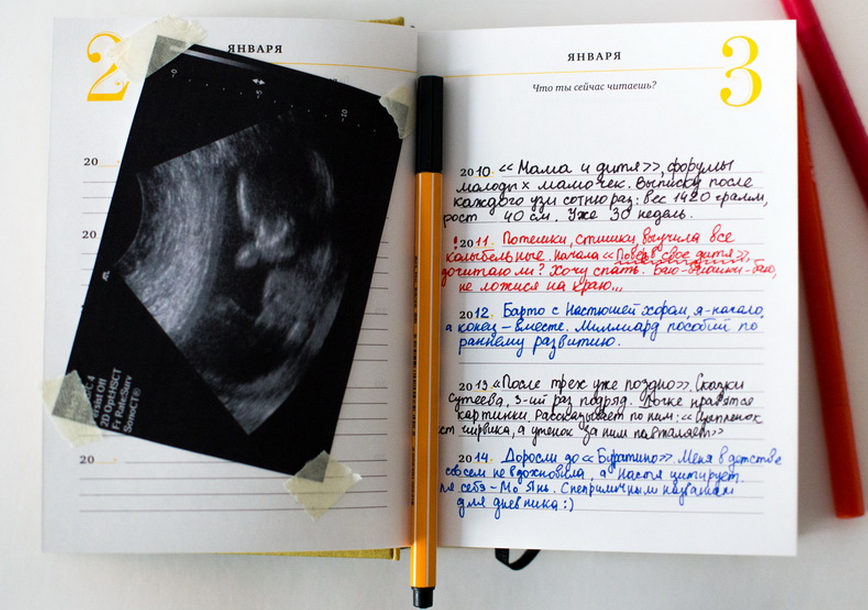 2
ЯНВАРЯ
20
20
20
-0
-5
-10
2D OptHSCT
Fr Rate:Surv
SonoCT®
ЯНВАРЯ
3
Что ты сейчас читаешь?
2010. «Мама и дитя», форумы
молодых мамочек. Выписку после
каждого узи сотню раз: вес 1420 грамм,
рост 40 см. Уже 30 недель.
! 2011. Потешки, стишки, выучила все
колыбельные. Начала «Поверь в свое дитя»,
дочитаю ли? Хочу спать. Баю-баюшки-баю,
не ложися на краю...
2012. Барто с Настюшей хором, я-начало,
а конец - вместе. Миллиард пособий по
раннему развитию.
2013 «После трех уже поздно». Сказки
Сутеева, 3-ий раз подряд. Дочке нравятся
картинки. Рассказывает по ним: «Цыпленок
ест чирвика, а утенок за ним
2014. Доросли до «Буратино». Меня в детстве
совсем не вдохновила, а Настя цитирует.
себя - Мо Янь. С неприличным названием
для дневника :)